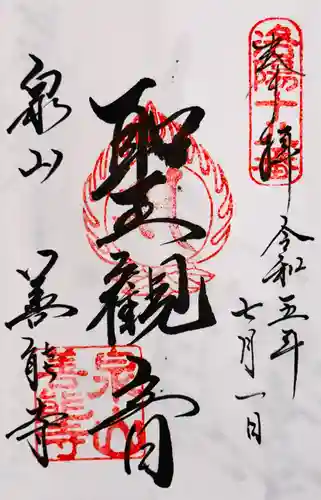 奉拝
洛陽十八番
令和五年
七月一日
聖観音
泉山
善能寺
泉山
善能寺